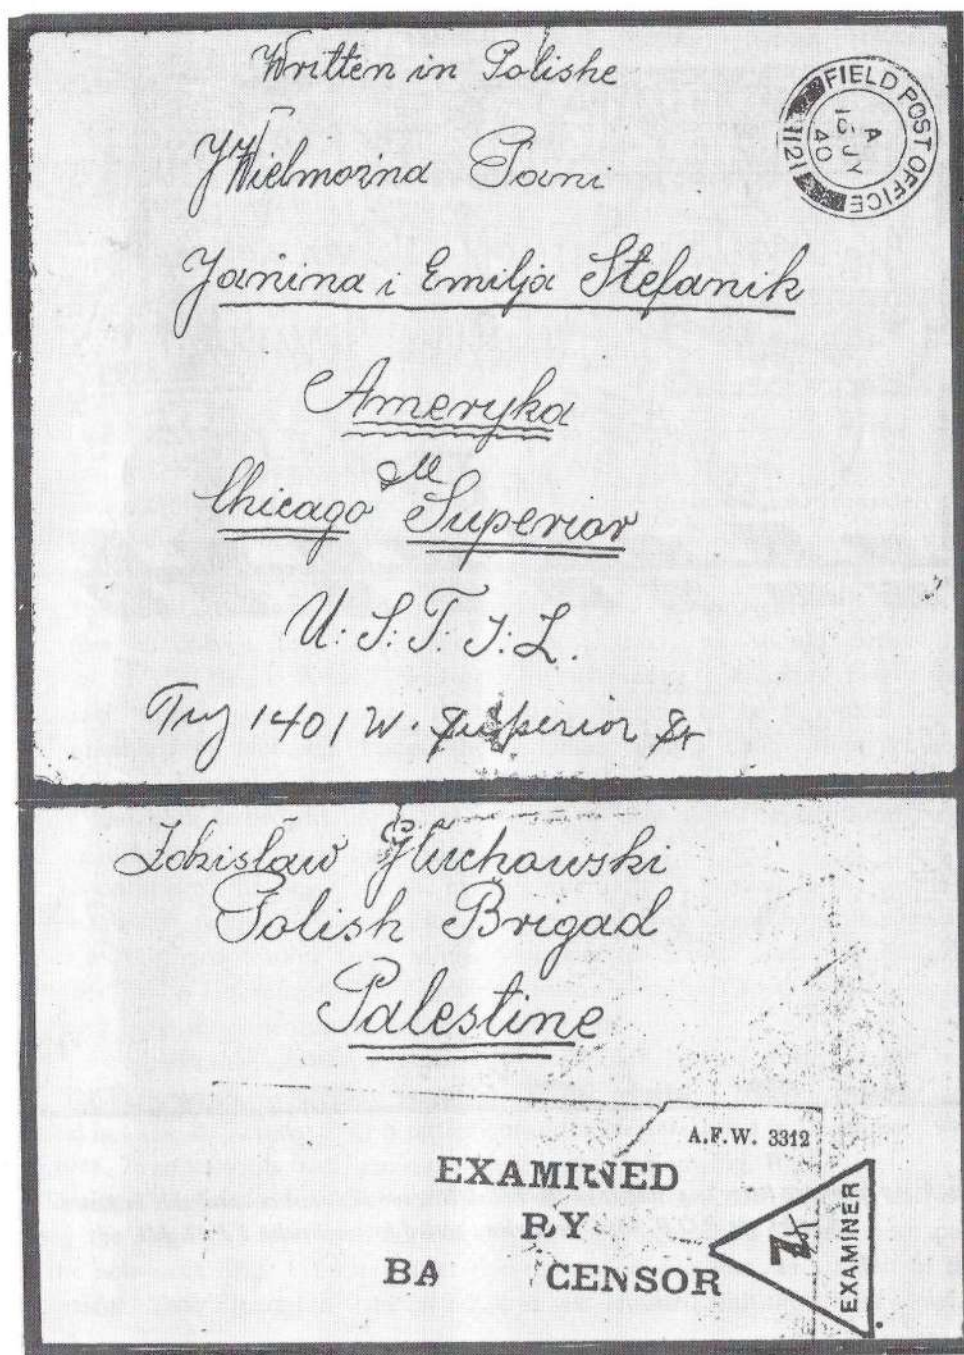 Written in Polishe
FIELD POST OFFICE
A
10 JY
40
121
JWielmożna Pani
Janina i Emilja Stefanik
Ameryka
Ill
Chicago Superior
U: S: T: J: L.
Try 1401 W. Superior St
Zdzisław Głuchowski
Polish Brigad
Palestine
A.F.W. 3312
EXAMINED
BY
BA CENSOR
EXAMINER